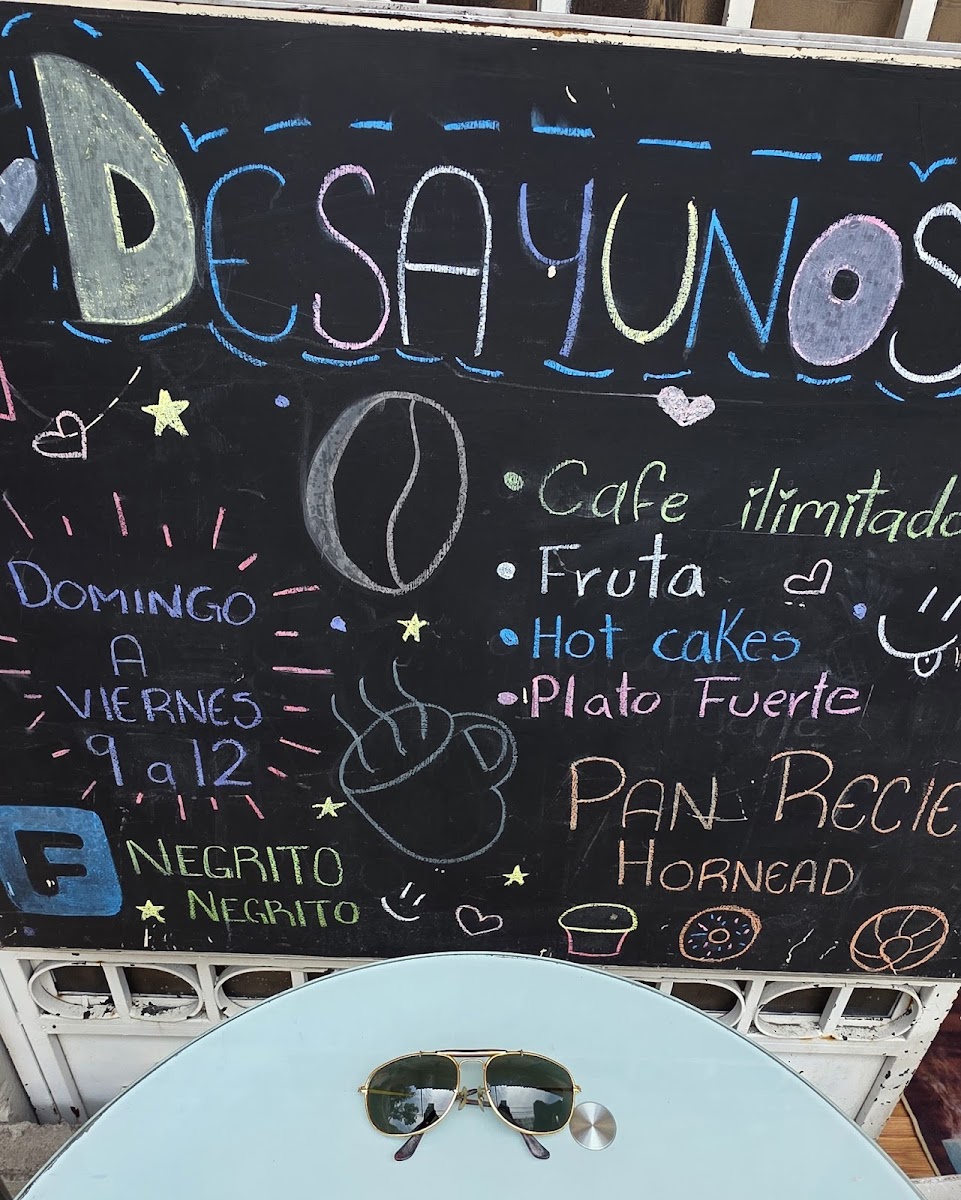 DESAYUNOS
• Cafe ilimitado
• Fruta
• Hot cakes
• Plato Fuerte
DOMINGO
A
VIERNES
9 a 12
PAN RECIE
HORNEAD
F NEGRITO
NEGRITO